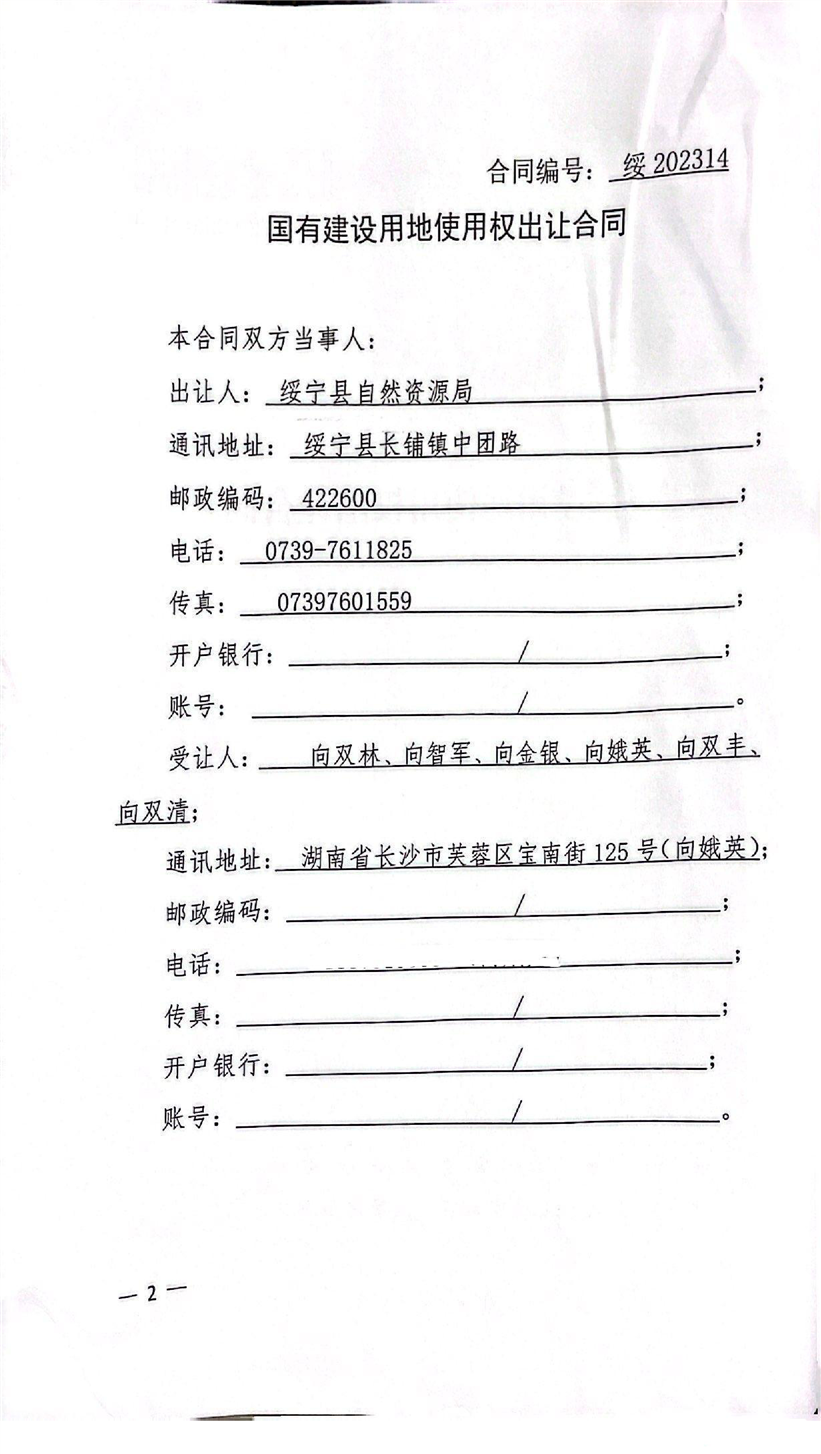 合同编号：绥202314
国有建设用地使用权出让合同
本合同双方当事人：
出让人：绥宁县自然资源局；
通讯地址：绥宁县长铺镇中团路；
邮政编码：422600；
电话：0739-7611825；
传真：07397601559；
开户银行：/；
账号：/。
受让人：向双林、向智军、向金银、向娥英、向双丰、
向双清；
通讯地址：湖南省长沙市芙蓉区宝南街125号（向娥英）；
邮政编码：/；
电话：；
传真：/；
开户银行：/；
账号：/。
— 2 —